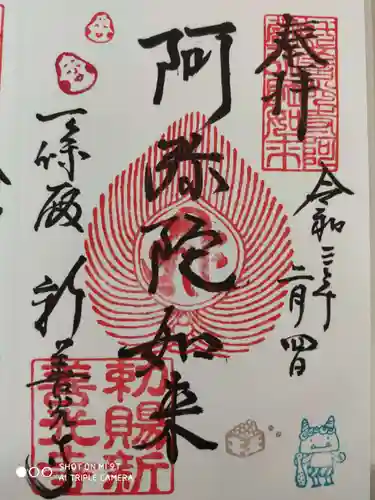 奉拝
令和三年
二月四日
阿弥陀如来
一條殿 新善光寺
勅賜新
善光寺
SHOT ON MI 9T
AI TRIPLE CAMERA